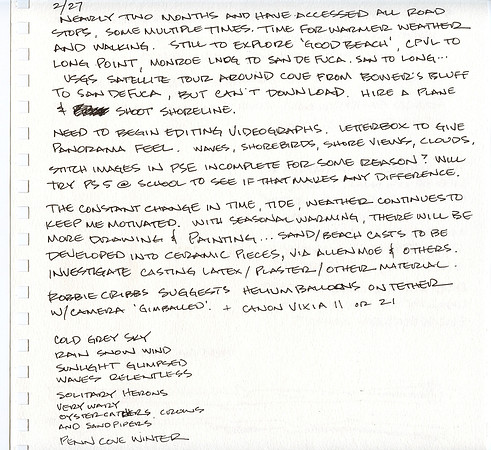 2/27
NEARLY TWO MONTHS AND HAVE ACCESSED ALL ROAD
STOPS, SOME MULTIPLE TIMES. TIME FOR WARMER WEATHER
AND WALKING. STILL TO EXPLORE 'GOOD BEACH', CPVL TO
LONG POINT, MONROE LNDG TO SAN DE FUCA. SAN TO LONG...
USGS SATELLITE TOUR AROUND COVE FROM BOWER'S BLUFF
TO SAN DE FUCA, BUT CAN'T DOWNLOAD. HIRE A PLANE
& SHOOT SHORELINE.
NEED TO BEGIN EDITING VIDEOGRAPHS. LETTERBOX TO GIVE
PANORAMA FEEL. WAVES, SHOREBIRDS, SHORE VIEWS, CLOUDS,
STITCH IMAGES IN PSE INCOMPLETE FOR SOME REASON? WILL
TRY PS 5 @ SCHOOL TO SEE IF THAT MAKES ANY DIFFERENCE.
THE CONSTANT CHANGE IN TIME, TIDE, WEATHER CONTINUES TO
KEEP ME MOTIVATED. WITH SEASONAL WARMING, THERE WILL BE
MORE DRAWING & PAINTING... SAND/BEACH CASTS TO BE
DEVELOPED INTO CERAMIC PIECES, VIA ALLEN MOE & OTHERS.
INVESTIGATE CASTING LATEX/PLASTER/OTHER MATERIAL.
ROBBIE CRIBBS SUGGESTS HELIUM BALLOONS ON TETHER
W/CAMERA 'GIMBALLED'. + CANON VIXIA 11 OR 21
COLD GREY SKY
RAIN SNOW WIND
SUNLIGHT GLIMPSED
WAVES RELENTLESS
SOLITARY HERONS
VERY WARY
OYSTERCATCHERS, CROWS
AND SANDPIPERS
PENN COVE WINTER